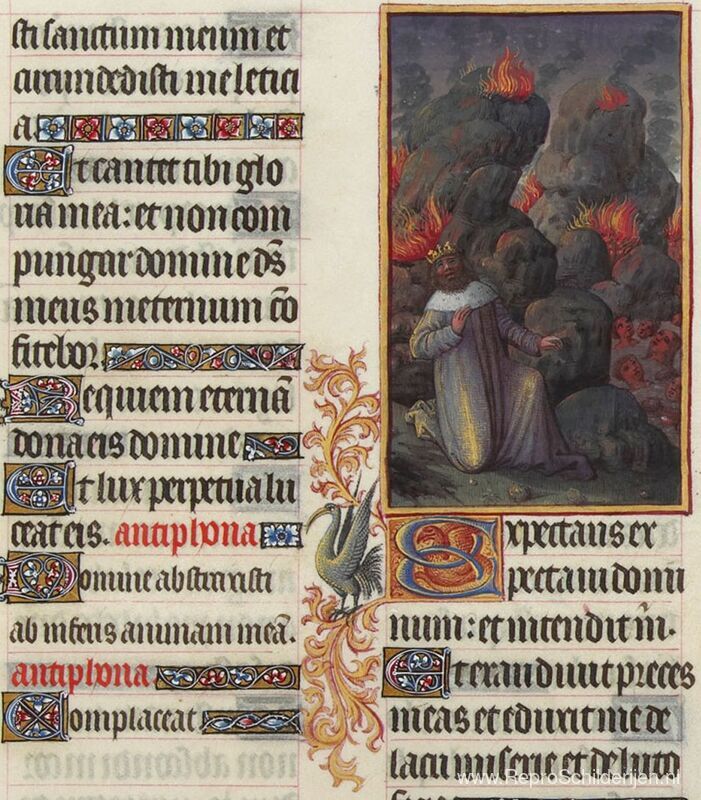 sti sanctum meum et
circundedisti me letici
a
Et cantet tibi glo
ria mea: et non com
pungar domine ds̄
meus in eternum cō
fitebor
Requiem eternā
dona eis domine
Et lux perpetua lu
ceat eis. antiphona
Domine abstraxisti
ab inferis animam meā.
antiphona
Complaceat
Expectans ex
pectaui domi
num: et intendit m̄.
Et exaudiuit preces
meas et eduxit me de
lacu miserie et de luto
www.ReproSchilderijen.nl